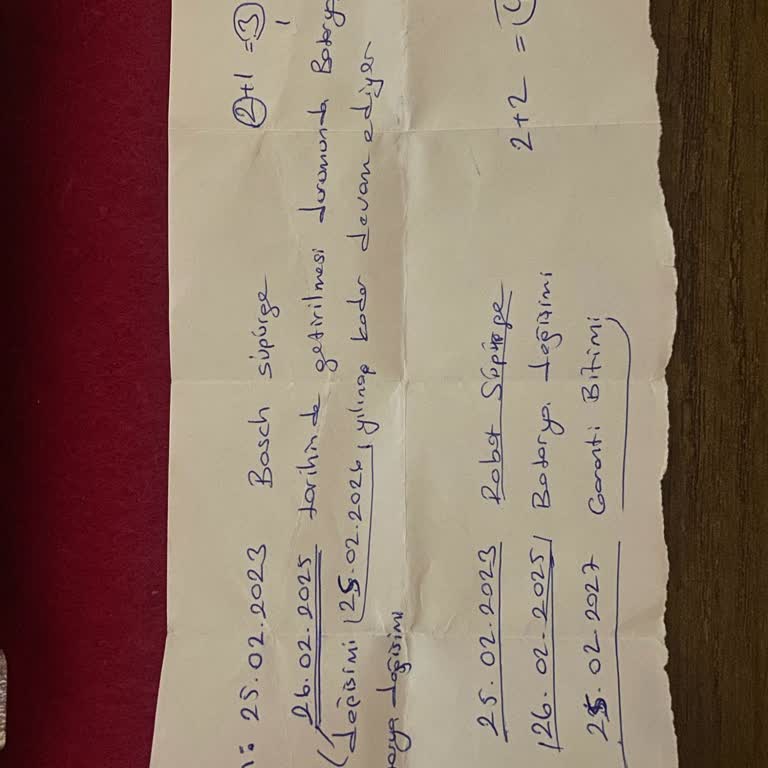 : 25.02.2023 Bosch süpürge 2+1 = 3
26.02.2025 tarihinde getirilmesi durumunda Batarya
değişimi 25.02.2026 yılınap kadar devam ediyor
değişimi
25.02.2023 Robot Süpürge 2+2 =
26.02.2025 Batarya değişimi
25.02.2027 Garanti Bitimi